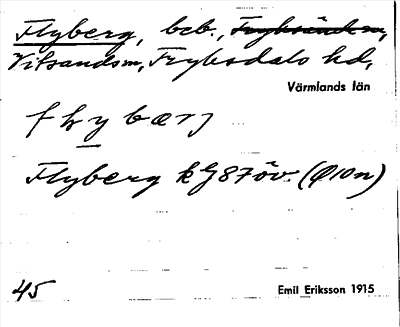 Flyberg, beb., Fryksände sn,
Vitsands sn, Fryksdals hd,
Värmlands län
flybærj
Flyberg kG87öv. (Ø10n)
45
Emil Eriksson 1915